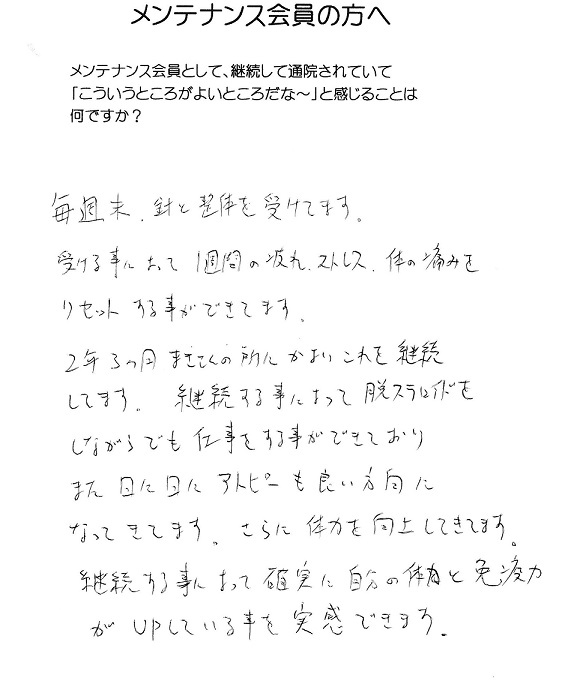 メンテナンス会員の方へ
メンテナンス会員として、継続して通院されていて
「こういうところがよいところだな～」と感じることは
何ですか？
毎週末、針と整体を受けてます。
受ける事によって1週間の疲れ、ストレス、体の痛みを
リセットする事ができてます。
2年3ヶ月まきさんの所にかよいこれを継続
してます。継続する事によって脱ステロイドを
しながらでも仕事をする事ができており
また日に日にアトピーも良い方向に
なってきてます。さらに体力も向上してきてます。
継続する事によって確実に自分の体力と免疫力
がUPしている事を実感できます。